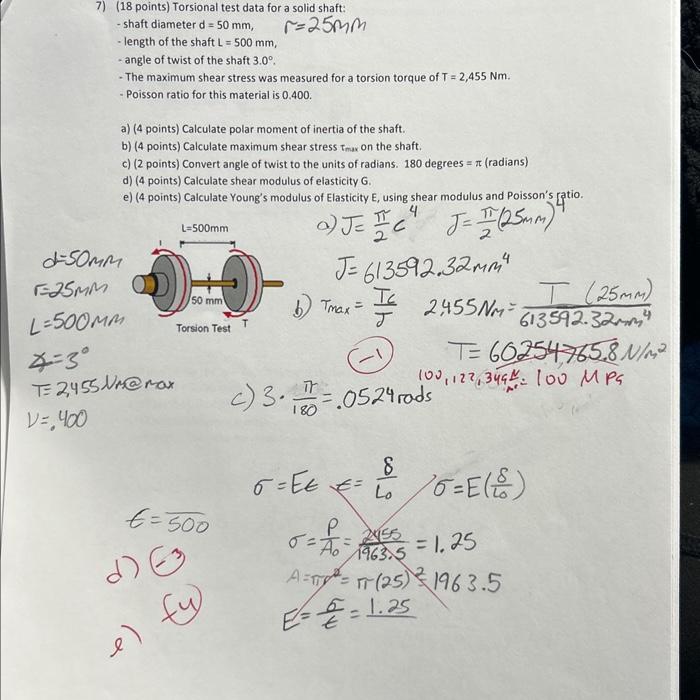 7) (18 points) Torsional test data for a solid shaft:
- shaft diameter d = 50 mm, r=25mm
- length of the shaft L = 500 mm,
- angle of twist of the shaft 3.0°.
- The maximum shear stress was measured for a torsion torque of T = 2,455 Nm.
- Poisson ratio for this material is 0.400.
a) (4 points) Calculate polar moment of inertia of the shaft.
b) (4 points) Calculate maximum shear stress τmax on the shaft.
c) (2 points) Convert angle of twist to the units of radians. 180 degrees = π (radians)
d) (4 points) Calculate shear modulus of elasticity G.
e) (4 points) Calculate Young's modulus of Elasticity E, using shear modulus and Poisson's ratio.
L=500mm
50 mm
T
Torsion Test
d=50mm
r=25mm
L=500mm
∡=3°
T=2,455 Nm@max
ν=.400
a) J=π/2 c⁴ J=π/2(25mm)⁴
J=613592.32mm⁴
b) Tmax = Tc/J 2,455Nm = T (25mm)/613592.32mm⁴
T=60254765.8 N/m²
-1
100,122,349 N/m² = 100 MPa
c) 3 · π/180 = .0524rads
σ=Eϵ ϵ=δ/L₀ σ=E(δ/L₀)
ϵ= /500
σ=P/A₀=2455/1963.5=1.25
A=πr²=π(25)²=1963.5
E=σ/ϵ=1.25
d) -3
e) -4